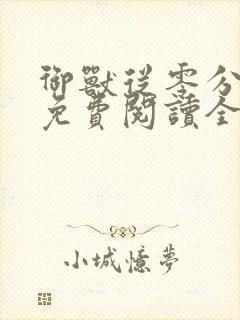 御獸從零分
免費閱讀全
小城憶夢